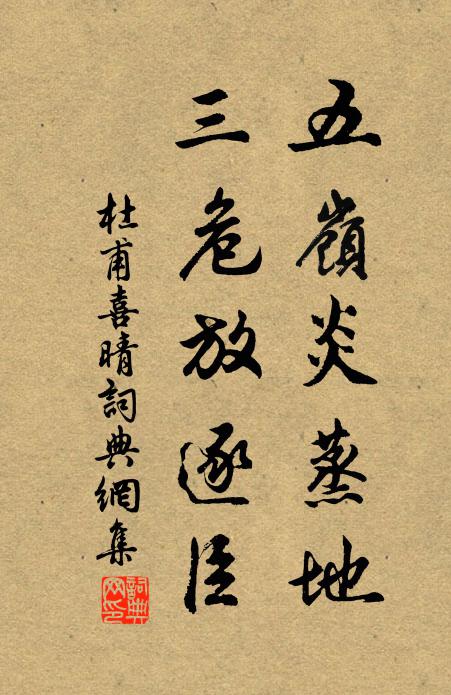 五嶺炎蒸地
三危放逐臣
杜甫喜晴詞典網集
詞典网印